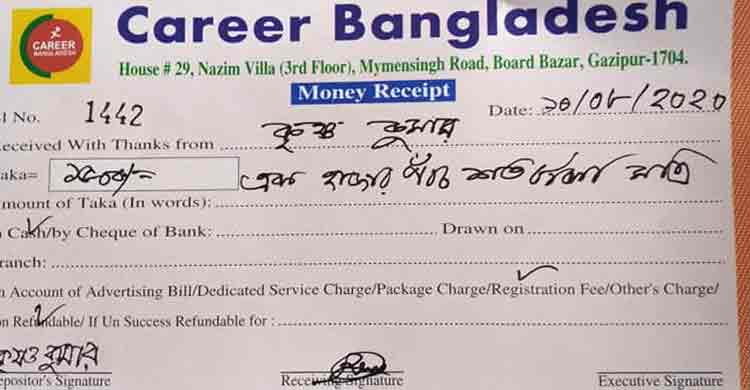 CAREER BANGLADESH
Career Bangladesh
House # 29, Nazim Villa (3rd Floor), Mymensingh Road, Board Bazar, Gazipur-1704.
Money Receipt
l No. 1442 Date: ২০/০৮/2020
eceived With Thanks from কৃষ্ণ কুমার
aka= ১৫০০/= এক হাজার পাঁচ শত টাকা মাত্র
mount of Taka (In words):
Cash/by Cheque of Bank: Drawn on
ranch:
n Account of Advertising Bill/Dedicated Service Charge/Package Charge/Registration Fee/Other's Charge/
on Refundable/ If Un Success Refundable for :
কুমার
epositor's Signature Receiving Signature Executive Signature